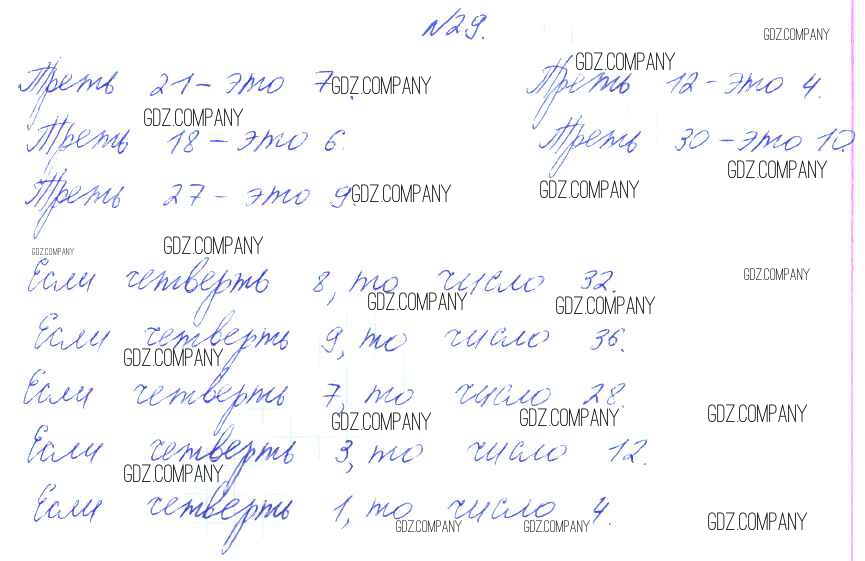 №29.
GDZ.COMPANY
Треть 21 – это 7. GDZ.COMPANY
GDZ.COMPANY
Треть 12 – это 4.
GDZ.COMPANY
Треть 18 – это 6.
Треть 30 – это 10.
GDZ.COMPANY
Треть 27 – это 9. GDZ.COMPANY
GDZ.COMPANY
GDZ.COMPANY GDZ.COMPANY
Если четверть 8, то число 32.
GDZ.COMPANY
GDZ.COMPANY GDZ.COMPANY
Если четверть 9, то число 36.
GDZ.COMPANY
Если четверть 7, то число 28.
GDZ.COMPANY GDZ.COMPANY GDZ.COMPANY
Если четверть 3, то число 12.
GDZ.COMPANY
Если четверть 1, то число 4.
GDZ.COMPANY GDZ.COMPANY GDZ.COMPANY